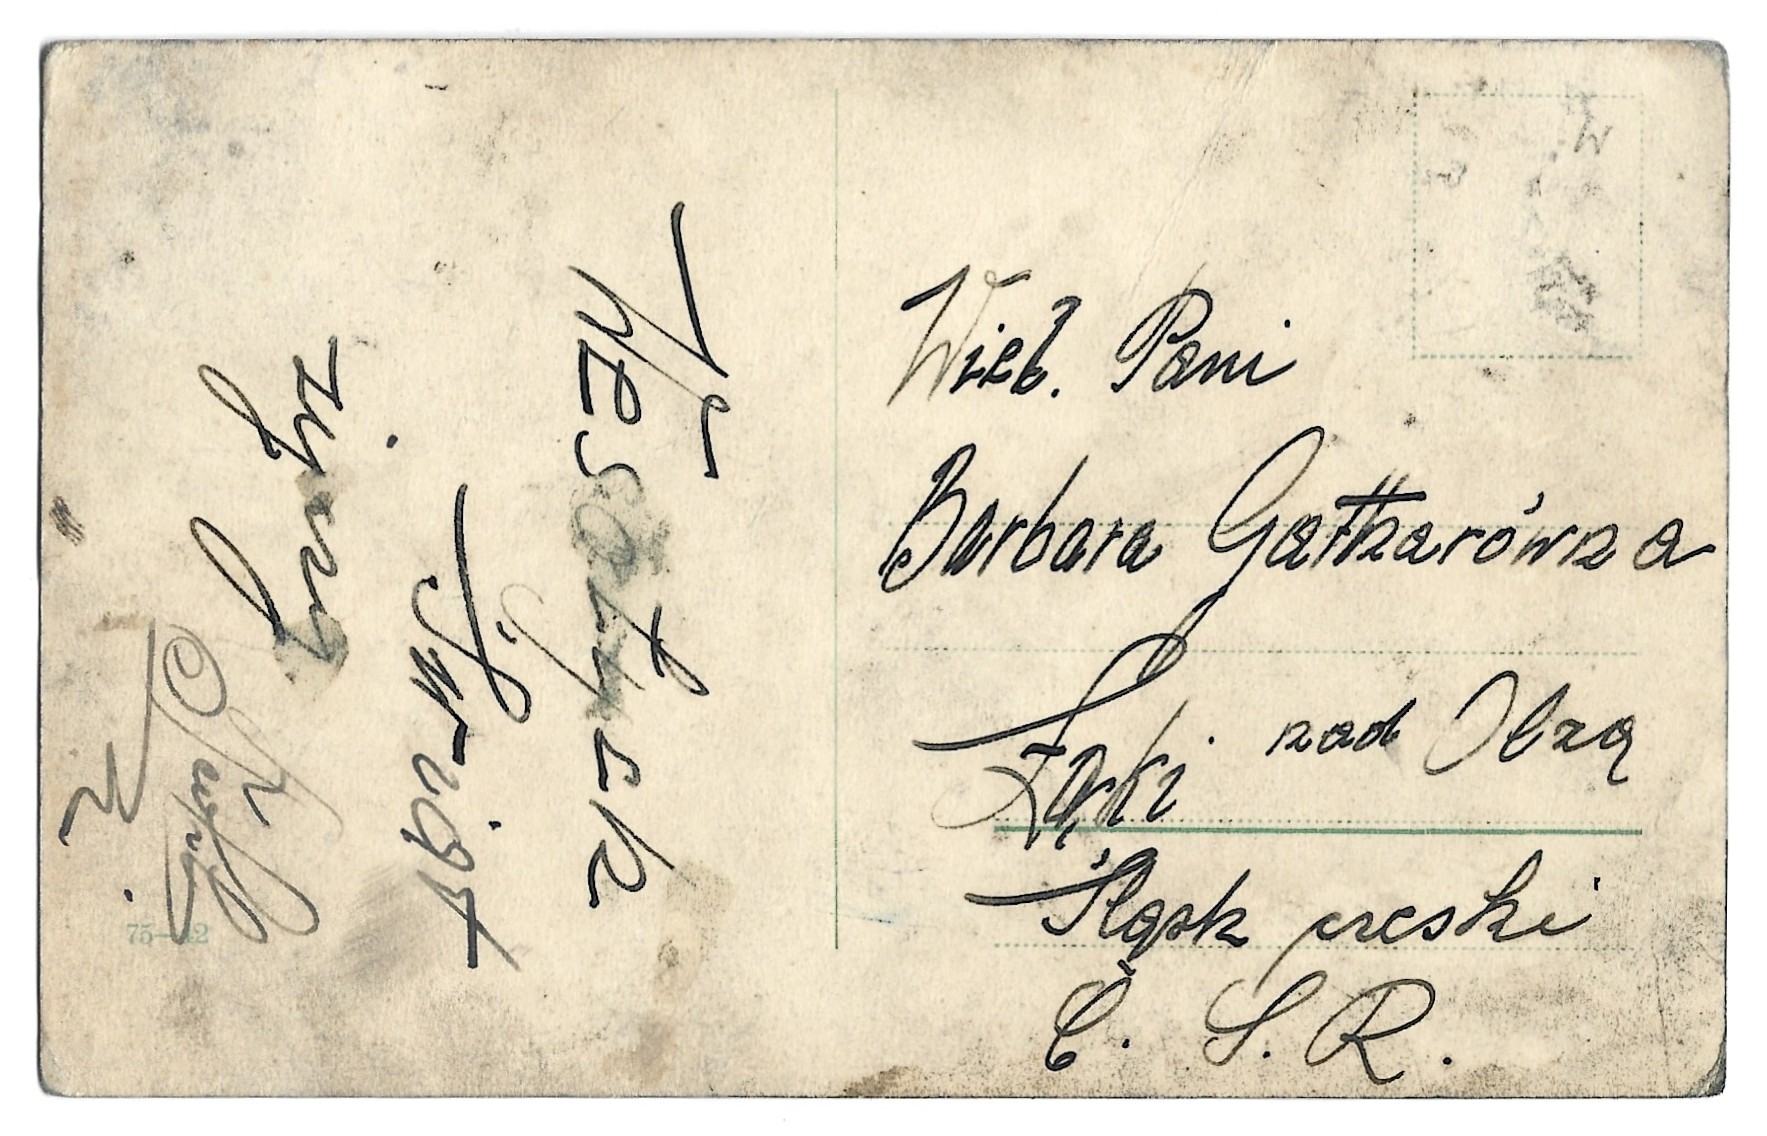 Wesołych
Świąt
życzy
75—42
Pani
Barbara
Łąki nad Olzą
Śląsk czeski
Č. S. R.